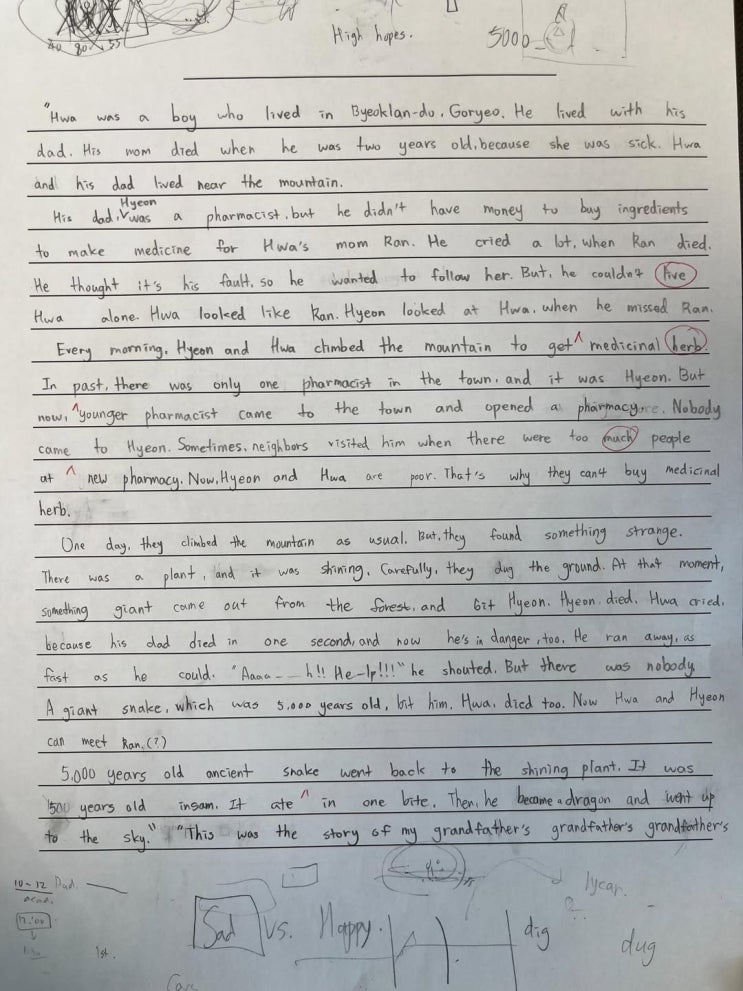 40 80 55
High hopes.
5000
"Hwa was a boy who lived in Byeoklan-do, Goryeo. He lived with his
dad. His mom died when he was two years old, because she was sick. Hwa
and his dad lived near the mountain.
His dad, Hyeon was a pharmacist, but he didn't have money to buy ingredients
to make medicine for Hwa's mom Ran. He cried a lot, when Ran died.
He thought it's his fault, so he wanted to follow her. But, he couldn't live
Hwa alone. Hwa looked like Ran. Hyeon looked at Hwa, when he missed Ran.
Every morning, Hyeon and Hwa climbed the mountain to get medicinal herb.
In past, there was only one pharmacist in the town, and it was Hyeon. But
now, younger pharmacist came to the town and opened a pharmacy. Nobody
came to Hyeon. Sometimes, neighbors visited him when there were too much people
at new pharmacy. Now, Hyeon and Hwa are poor. That's why they can't buy medicinal
herb.
One day, they climbed the mountain as usual. But, they found something strange.
There was a plant, and it was shining. Carefully, they dug the ground. At that moment,
something giant came out from the forest, and bit Hyeon. Hyeon died. Hwa cried,
because his dad died in one second, and now he's in danger, too. He ran away, as
fast as he could. "Aaaa--h!! He-lp!!!" he shouted. But there was nobody
A giant snake, which was 5,000 years old, bit him. Hwa, died too. Now Hwa and Hyeon
can meet Ran.(?)
5,000 years old ancient snake went back to the shining plant. It was
500 years old insam. It ate in one bite. Then, he became a dragon and went up
to the sky." "This was the story of my grandfather's grandfather's grandfather's
10~12
Sad vs. Happy.
1st.
dig
dug
1year.